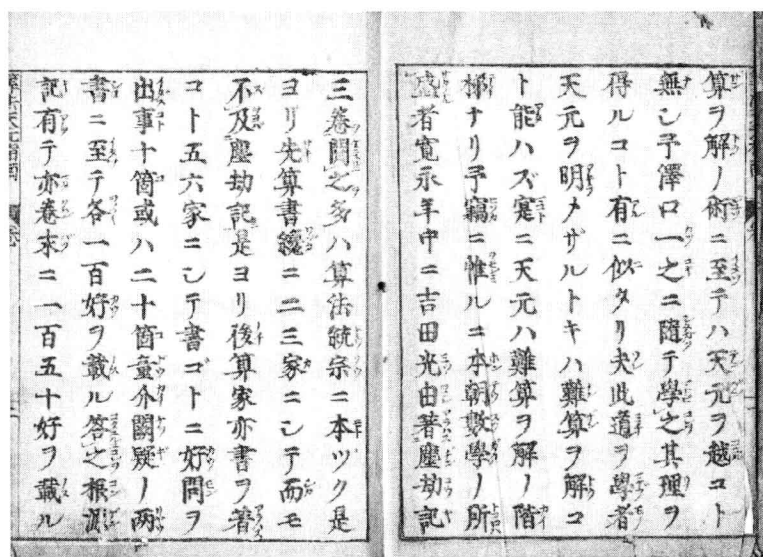 算ヲ解ノ術ニ至テハ天元ヲ越コト
無シ予澤口一之ニ隨テ學之其理ヲ
得ルコト有ニ似タリ夫此道ヲ學者
天元ヲ明メザルトキハ難算ヲ解コ
ト能ハズ寔ニ天元ハ難算ヲ解ノ階
梯ナリ予竊ニ惟ルニ本朝數學ノ所
盛者寛永年中ニ吉田光由著塵劫記
三卷問之多ハ算法統宗ニ本ツク是
ヨリ先算書纔ニ二三家ニシテ而モ
不及塵劫記是ヨリ後算家亦書ヲ著
コト五六家ニシテ書ゴトニ好問ヲ
出事十箇或ハ二十箇童介闕疑ノ兩
書ニ至テ各一百好ヲ載ル答之根源
記有テ亦卷末ニ一百五十好ヲ載ル